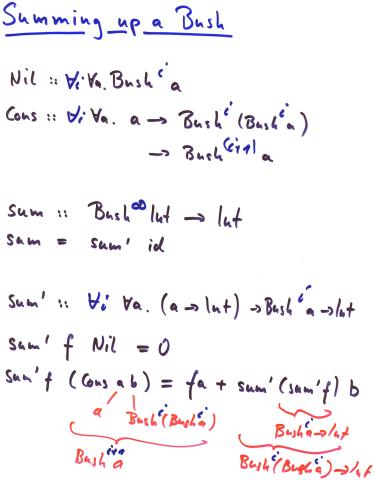 Summing up a Bush
Nil :: ∀i ∀a. Bush^i a
Cons :: ∀i ∀a. a → Bush^i (Bush^i a)
→ Bush^(i+1) a
sum :: Bush^∞ Int → Int
sum = sum' id
sum' :: ∀i ∀a. (a → Int) → Bush^i a → Int
sum' f Nil = 0
sum' f (Cons a b) = f a + sum' (sum' f) b
a Bush^i (Bush^i a)
Bush^i a → Int
Bush^i+1 a
Bush^i (Bush^i a) → Int